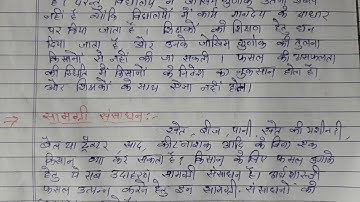 है। परन्तु विद्यालय में जोखिम मूल्यांक उतना अधिक
नहीं है क्योंकि विद्यालयों में कार्य मानदेय के आधार
पर किया जाता है। शिक्षकों को शिक्षण हेतु धन
दिया जाता है और उनके जोखिम मूल्यांक की तुलना
किसानों से नहीं की जा सकती। फसल की असफलता
की स्थिति में किसानों के निवेश का नुकसान होता है।
और शिक्षकों के साथ ऐसा नहीं होता।
→ सामग्री संसाधन:-
खेत, बीज, पानी, खेत की मशीनरी,
बैल या ट्रैक्टर, खाद, कीटनाशक आदि के बिना एक
किसान क्या कर सकता है? किसान के लिए फसल उगाने
हेतु ये सब उदाहरण सामग्री संसाधन हैं। अर्थशास्त्री
फसल उत्पन्न करने हेतु इन सामग्री संसाधनों की